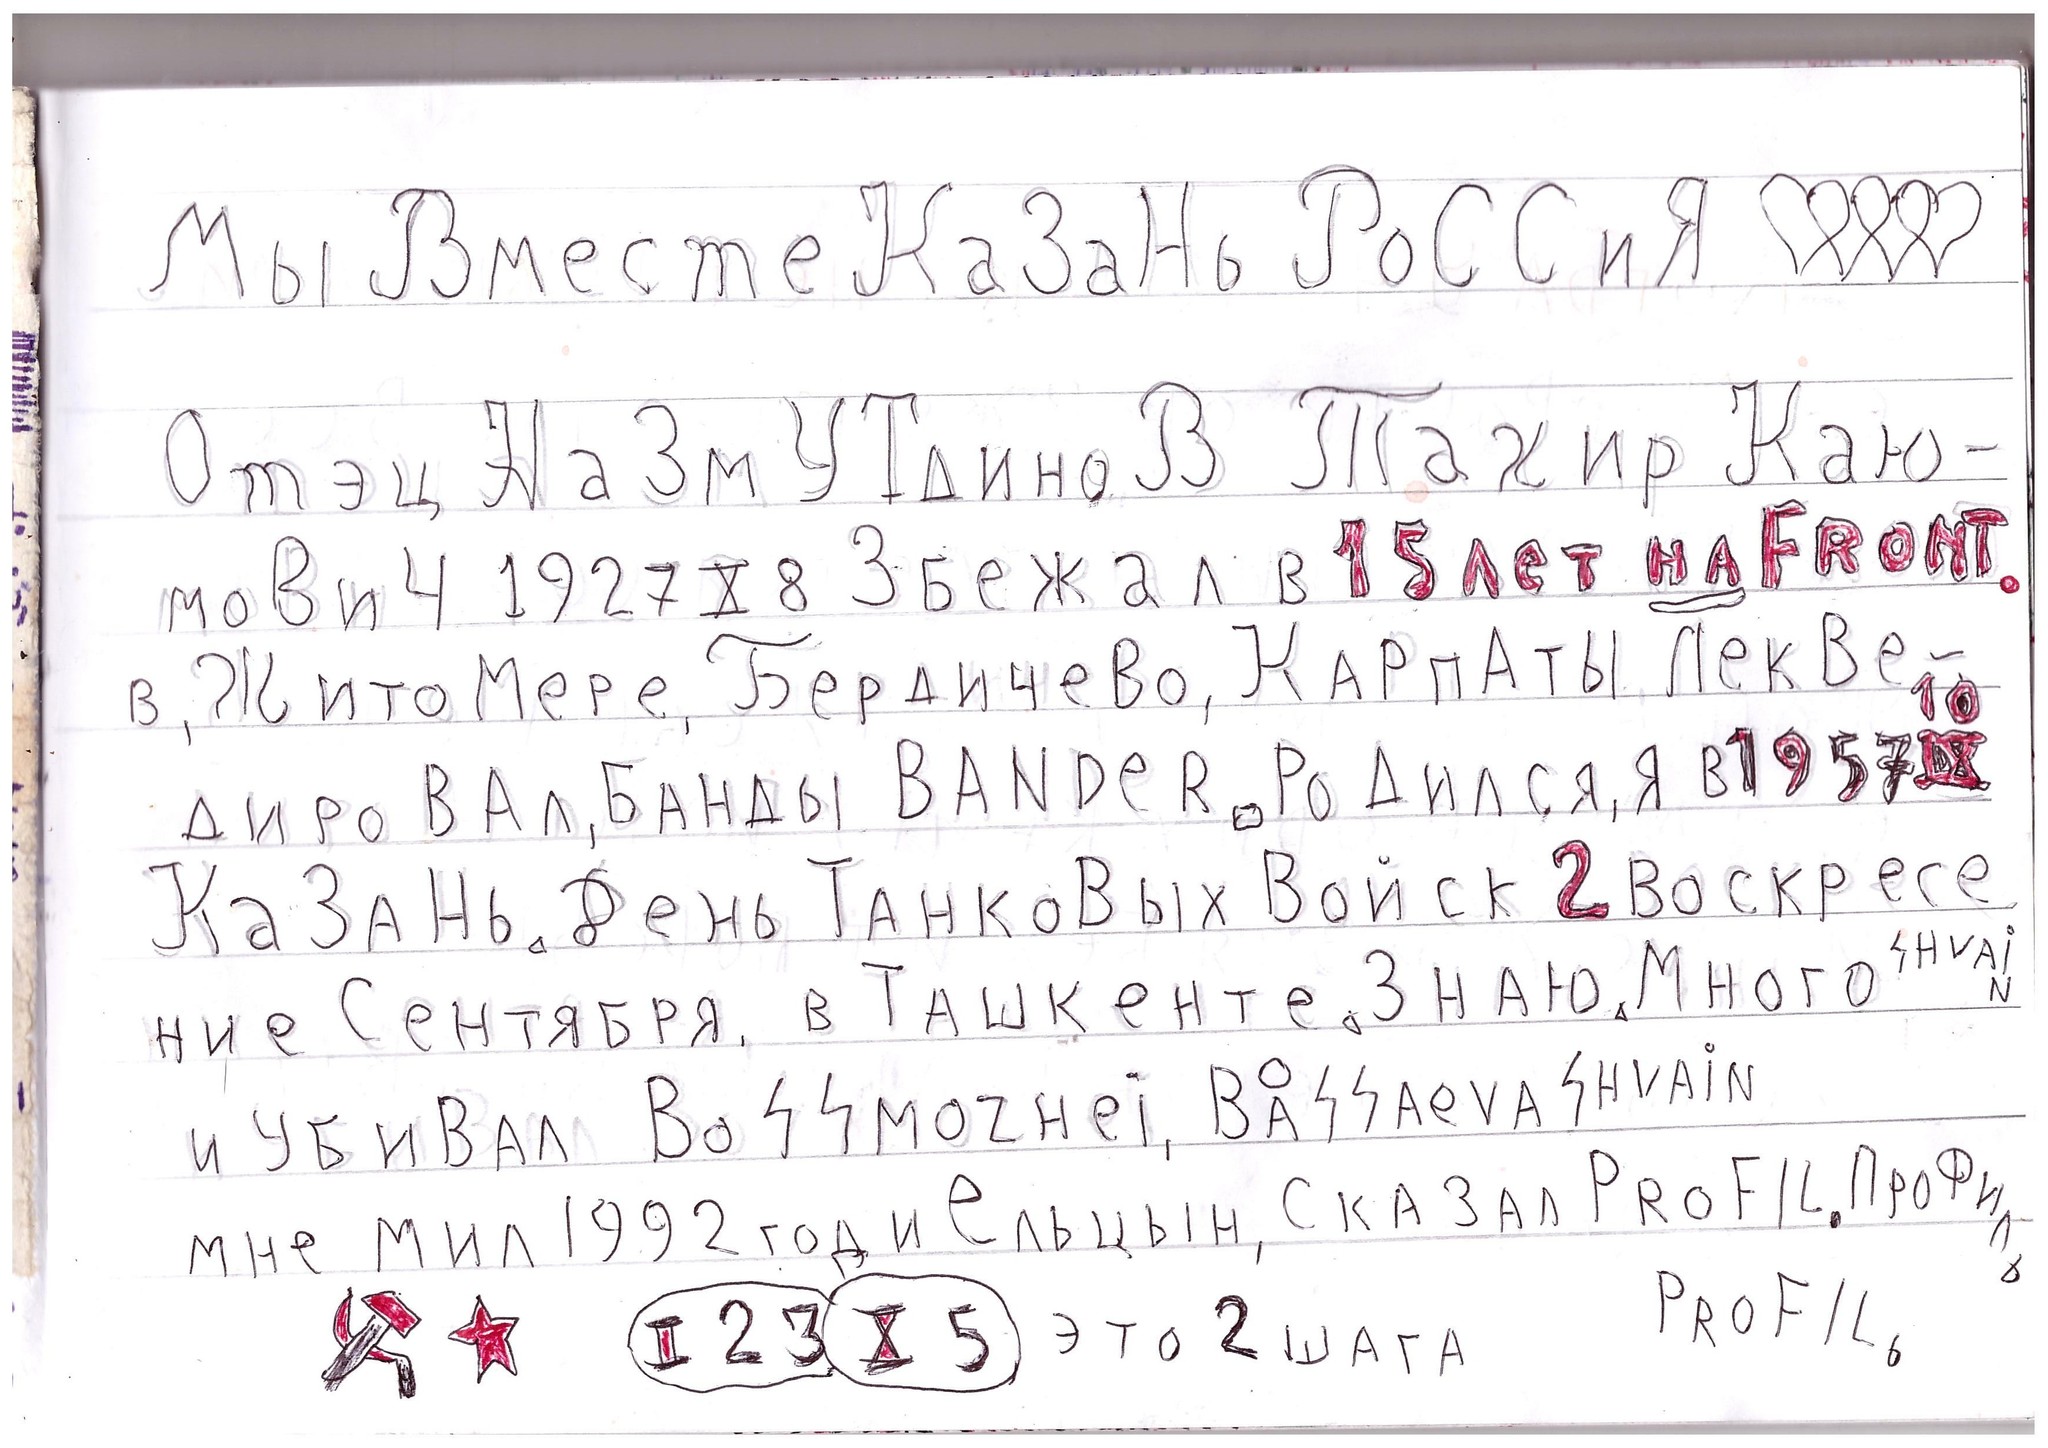 Мы Вместе КаЗаНь РоССиЯ
Отэц НаЗмУТдиноВ Тахир Каю-
моВиЧ 1927 X 8 Збежал в 15 лет на FRONT.
в, ЖитоМере, БердичеВо, КАРпАты ЛекВе-
дироВАл, БАНДы BANDeR. РоДился, я в 1957 IX 10
КаЗАНь. День ТАнкоВых Войск 2 Воскресе
ние Сентября, в Ташкенте. Знаю. Много SHVAiN
и УбиВал BoSSmozHei, BÅSSAevA SHVAiN
мне мил 1992 год и Ельцын, сказал PROFIL. ПроФиль
II 23 X 5 это 2 шага PROFILь